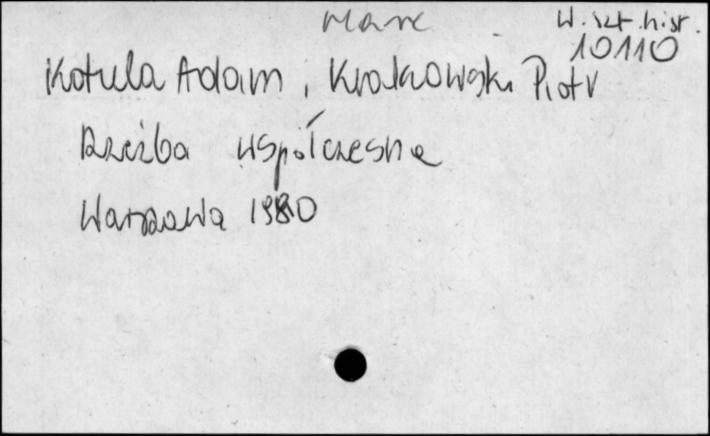 W. szt. hist.
10110
Kotula Adam, Krakowski Piotr
Rzeźba współczesna
Warszawa 1980